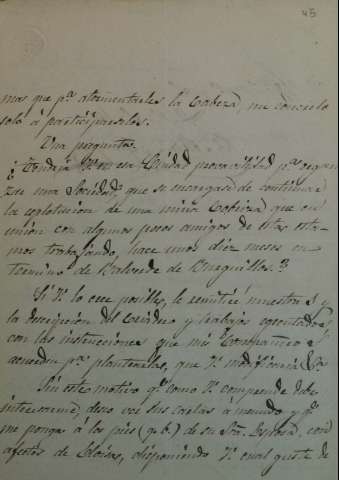 45
mas que pª atormentarles la Cabeza, me concreto
solo á participarselos.
Una pregunta.
¿Tendría V. en esa Ciudad proavilidad pª organi
zar una Sociedad que se encargara de continuar
la explotacion de una mina Cobriza que en
union con algunos pocos amigos de estas esta-
mos trabajando, hace unos diez meses en
termino de Valverde de Burguillos?
Si V. lo cree posible, le remitiré muestras y
la descripcion del Criadero y trabajos egecutados
con las instrucciones que mis Compañeros é
acuerden pª plantearlas, que V. modificará
Sin este motivo qº como V. comprende debe
interesarme, deseo ver sus cartas á menudo y qº
me ponga á los pies (q. b.) de su Sra. Esposa, con
afectos de Eloisa, disponiendo V. cual guste de